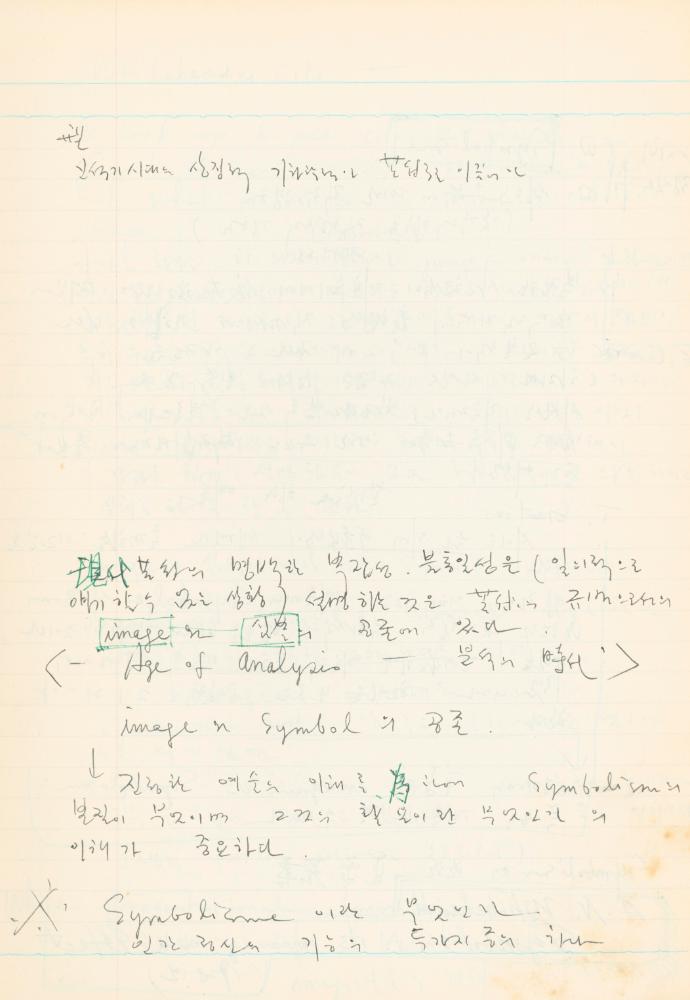 신석기시대의 상징적 기하학적
現代 문화의 명백한 복잡성. 불통일성은 (일의적으로
얘기할 수 없는 상황) 설명하는 것은
image와 심볼의 공존에 있다.
<- Age of Analysis — 분석의 時代 >
image와 Symbol의 공존.
↓ 진정한 예술의 이해를 爲하여 Symbolism의
본질이 무엇이며 그것의 무엇인가의
이해가 중요하다.
Symbolisme 이란 무엇인가.
인간 정신의 기능의 두가지 중의 하나